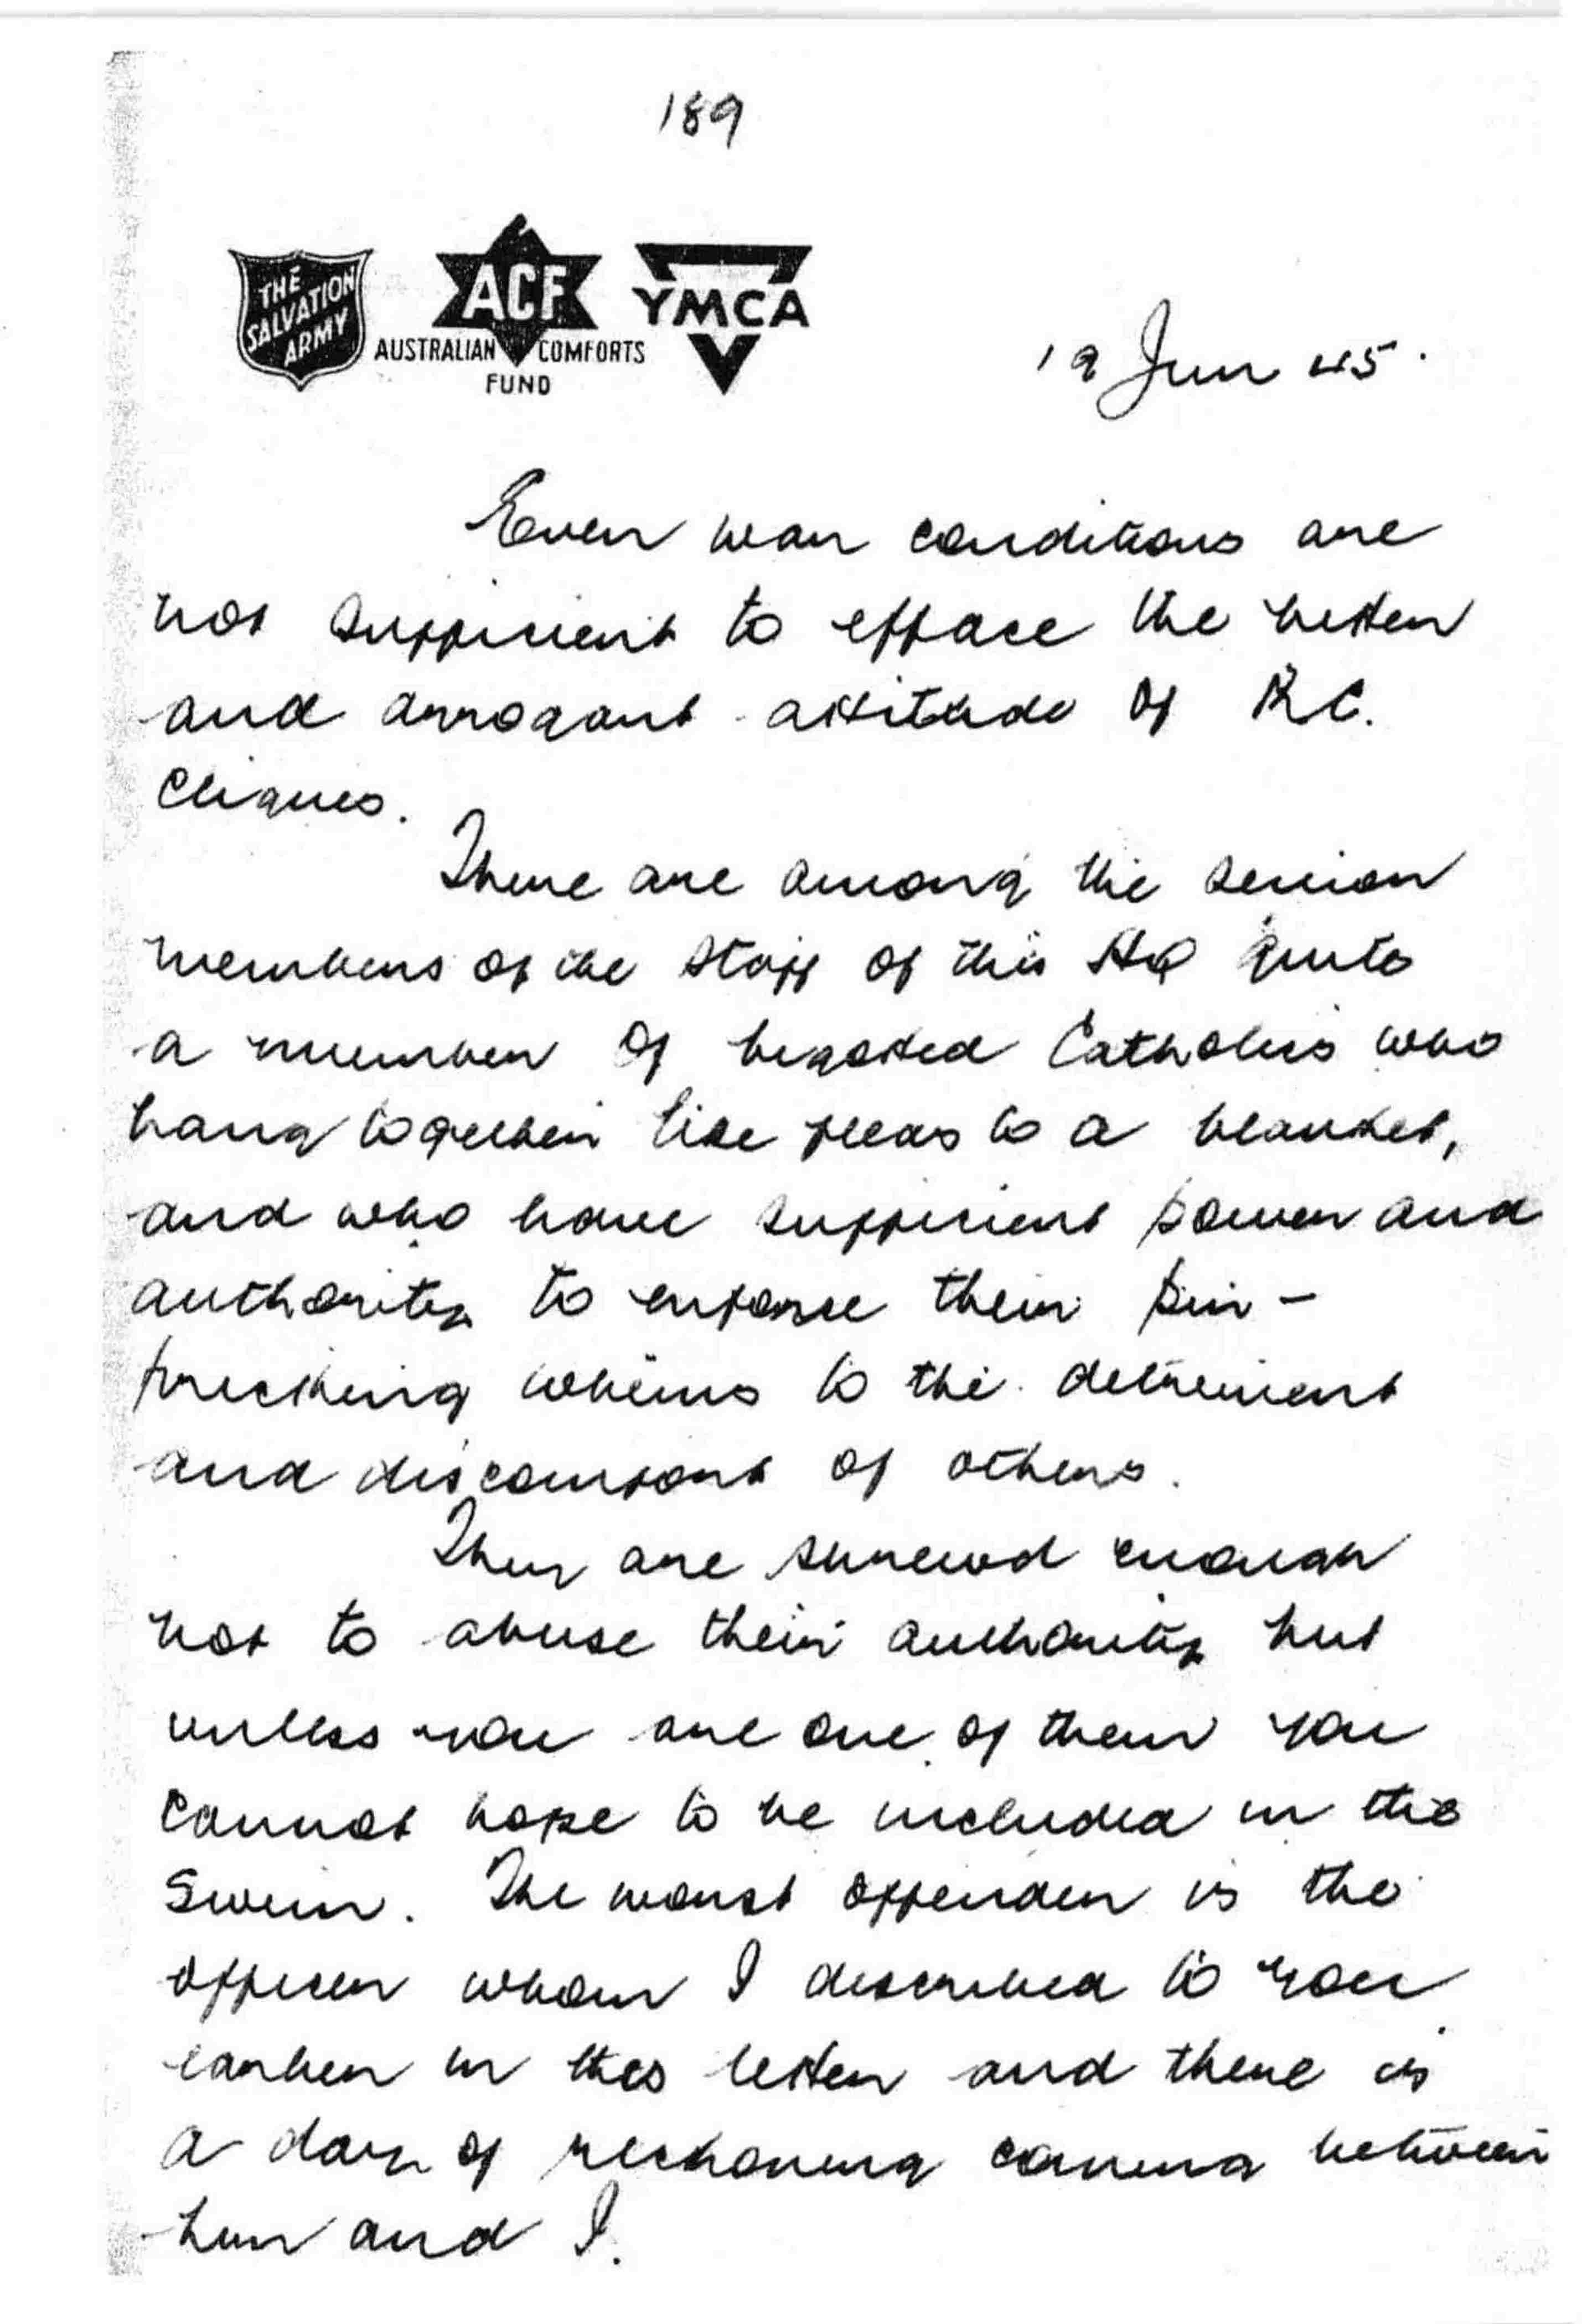 189
THE
SALVATION
ARMY
ACF
AUSTRALIAN COMFORTS
FUND
YMCA
19 Jun 45.
Even war conditions are
not sufficient to efface the bitter
and arrogant attitude of R.C.
cliques.
There are among the senior
members of the staff of this HQ quite
a number of bigoted Catholics who
hang together like fleas to a blanket,
and who have sufficient power and
authority to enforce their pin-
pricking whims to the detriment
and discomfort of others.
They are shrewd enough
not to abuse their authority but
unless you are one of them you
cannot hope to be included in the
swim. The worst offender is the
officer whom I described to you
earlier in this letter and there is
a day of reckoning coming between
him and I.